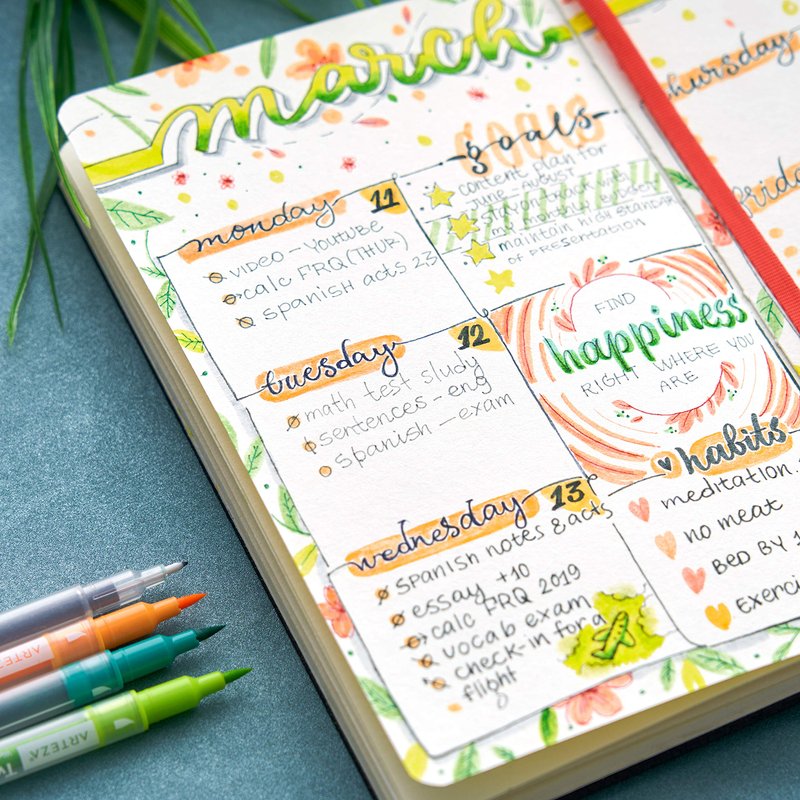 march
goals
content plan for
June - August
stay on track with
my monthly budget
maintain high standar
of presentation
monday 11
video - Youtube
calc FRQ (THUR)
spanish acts 23
tuesday 12
math test study
sentences - eng
spanish - exam
wednesday 13
spanish notes & acts
essay +10
calc FRQ 2019
vocab exam
check-in for a
flight
FIND
happiness
RIGHT WHERE YOU
ARE
habits
meditation
no meat
BED BY 1
Exerci
thursday
friday
ARTEZA
ARTEZA